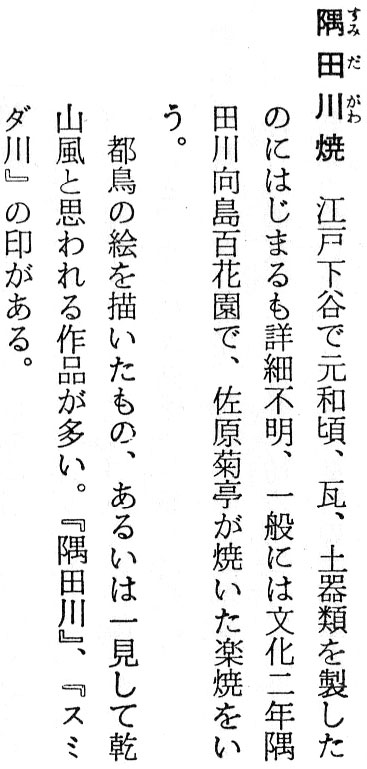 隅田川焼 江戸下谷で元和頃、瓦、土器類を製した
のにはじまるも詳細不明、一般には文化二年隅
田川向島百花園で、佐原菊亭が焼いた楽焼をい
う。
都鳥の絵を描いたもの、あるいは一見して乾
山風と思われる作品が多い。『隅田川』、『スミ
ダ川』の印がある。
すみだがわ